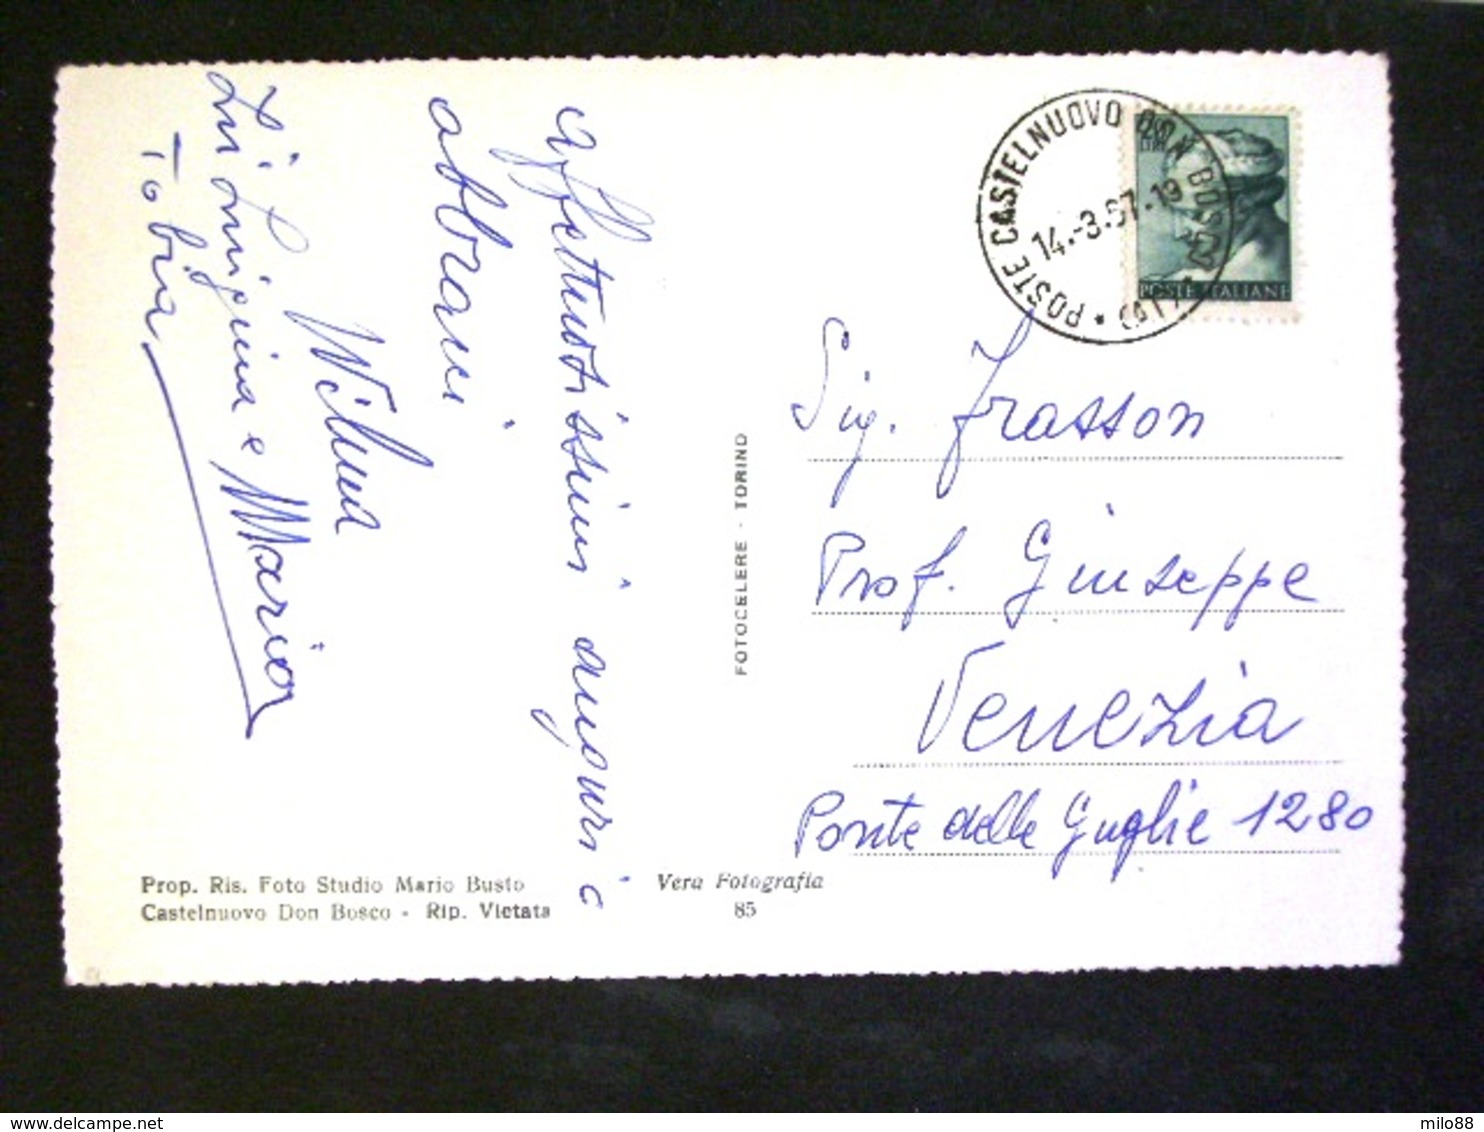 Affettuosissimi auguri e
abbracci
Wilma
Zii Luigina e Mario
Tobia
POSTE CASTELNUOVO DON BOSCO * (AT)
14.-3.67.19
LIRE
POSTE ITALIANE
Sig. Frasson
Prof. Giuseppe
Venezia
Ponte delle Guglie 1280
FOTOCELERE - TORINO
Prop. Ris. Foto Studio Mario Busto
Castelnuovo Don Bosco - Rip. Vietata
Vera Fotografia
85
milo88